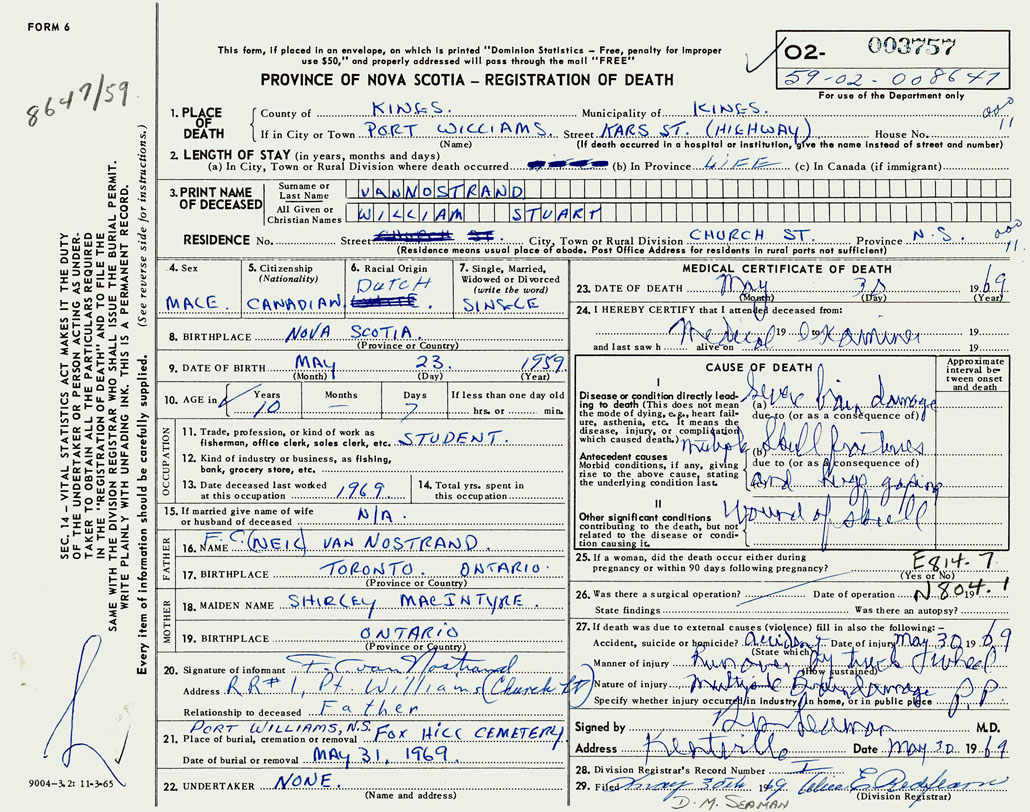 FORM 6
This form, if placed in an envelope, on which is printed "Dominion Statistics – Free, penalty for improper
use $50," and properly addressed will pass through the mail "FREE"
PROVINCE OF NOVA SCOTIA – REGISTRATION OF DEATH
O2- 003757
59-02-008647
For use of the Department only
8647/59
1. PLACE OF DEATH County of KINGS. Municipality of KINGS.
If in City or Town PORT WILLIAMS. Street KARS ST. (HIGHWAY) House No.
(Name) (If death occurred in a hospital or institution, give the name instead of street and number)
000
11
2. LENGTH OF STAY (in years, months and days)
(a) In City, Town or Rural Division where death occurred (b) In Province LIFE (c) In Canada (if immigrant)
3. PRINT NAME OF DECEASED
Surname or Last Name VANNOSTRAND
All Given or Christian Names WILLIAM STUART
RESIDENCE No. Street CHURCH ST. City, Town or Rural Division CHURCH ST. Province N.S.
000
11.
(Residence means usual place of abode. Post Office Address for residents in rural parts not sufficient)
4. Sex MALE.
5. Citizenship (Nationality) CANADIAN.
6. Racial Origin DUTCH
7. Single, Married, Widowed or Divorced (write the word) SINGLE
8. BIRTHPLACE NOVA SCOTIA.
(Province or Country)
9. DATE OF BIRTH MAY 23. 1959.
(Month) (Day) (Year)
10. AGE in Years 10 Months – Days 7 If less than one day old hrs. or min.
OCCUPATION
11. Trade, profession, or kind of work as
fisherman, office clerk, sales clerk, etc. STUDENT.
12. Kind of industry or business, as fishing,
bank, grocery store, etc.
13. Date deceased last worked
at this occupation 1969.
14. Total yrs. spent in
this occupation
15. If married give name of wife
or husband of deceased N/A.
FATHER
16. NAME F.C. (NEIL) VAN NOSTRAND.
17. BIRTHPLACE TORONTO. ONTARIO.
(Province or Country)
MOTHER
18. MAIDEN NAME SHIRLEY MACINTYRE.
19. BIRTHPLACE ONTARIO
(Province or Country)
20. Signature of informant F. C. van Nostrand
Address RR#1, Pt. Williams (Church St)
Relationship to deceased Father
21. Place of burial, cremation or removal PORT WILLIAMS, N.S. FOX HILL CEMETERY
Date of burial or removal MAY 31, 1969.
22. UNDERTAKER NONE.
(Name and address)
MEDICAL CERTIFICATE OF DEATH
23. DATE OF DEATH May 30 1969
(Month) (Day) (Year)
24. I HEREBY CERTIFY that I attended deceased from:
19 to 19
Medical examiner
and last saw h alive on 19
CAUSE OF DEATH
Approximate interval between onset and death
I
Disease or condition directly leading to death (This does not mean the mode of dying, e.g., heart failure, asthenia, etc. It means the disease, injury, or complication which caused death.)
(a) Severe brain damage
due to (or as a consequence of)
Antecedent causes
Morbid conditions, if any, giving rise to the above cause, stating the underlying condition last.
(b) Multiple Skull fractures
due to (or as a consequence of)
(c) and huge gaping
II
Other significant conditions contributing to the death, but not related to the disease or condition causing it.
Wound of skull
25. If a woman, did the death occur either during
pregnancy or within 90 days following pregnancy?
(Yes or No)
E814.7
N804.1
26. Was there a surgical operation? Date of operation 19
State findings Was there an autopsy?
27. If death was due to external causes (violence) fill in also the following:–
Accident, suicide or homicide? accident Date of injury May 30 1969
(State which)
Manner of injury Run over by truck wheel
(How sustained)
Nature of injury Multiple Brain damage
Specify whether injury occurred in industry, in home, or in public place P.P
Signed by D M Seaman M.D.
Address Kentville Date May 30 1969
28. Division Registrar's Record Number I
29. Filed May 30th 1969
(Division Registrar)
D. M. SEAMAN
SEC. 14 – VITAL STATISTICS ACT MAKES IT THE DUTY
OF THE UNDERTAKER OR PERSON ACTING AS UNDER-
TAKER TO OBTAIN ALL THE PARTICULARS REQUIRED
IN THE "REGISTRATION OF DEATH" AND FILE THE
SAME WITH THE DIVISION REGISTRAR WHO SHALL ISSUE THE BURIAL PERMIT.
WRITE PLAINLY WITH UNFADING INK. THIS IS A PERMANENT RECORD.
Every item of information should be carefully supplied. (See reverse side for instructions.)
9004-3.2: 11-3-65